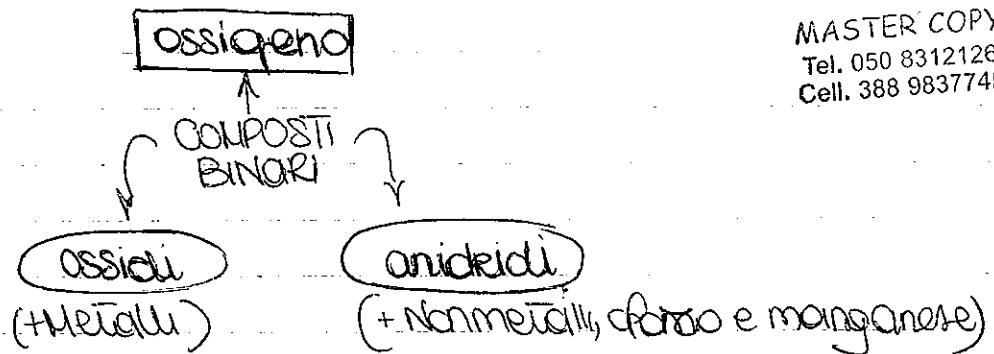 ossigeno
MASTER COPY
Tel. 050 8312126
Cell. 388 983774
COMPOSTI
BINARI
ossidi
anidridi
(+Metalli)
(+ Nonmetalli, e manganese)